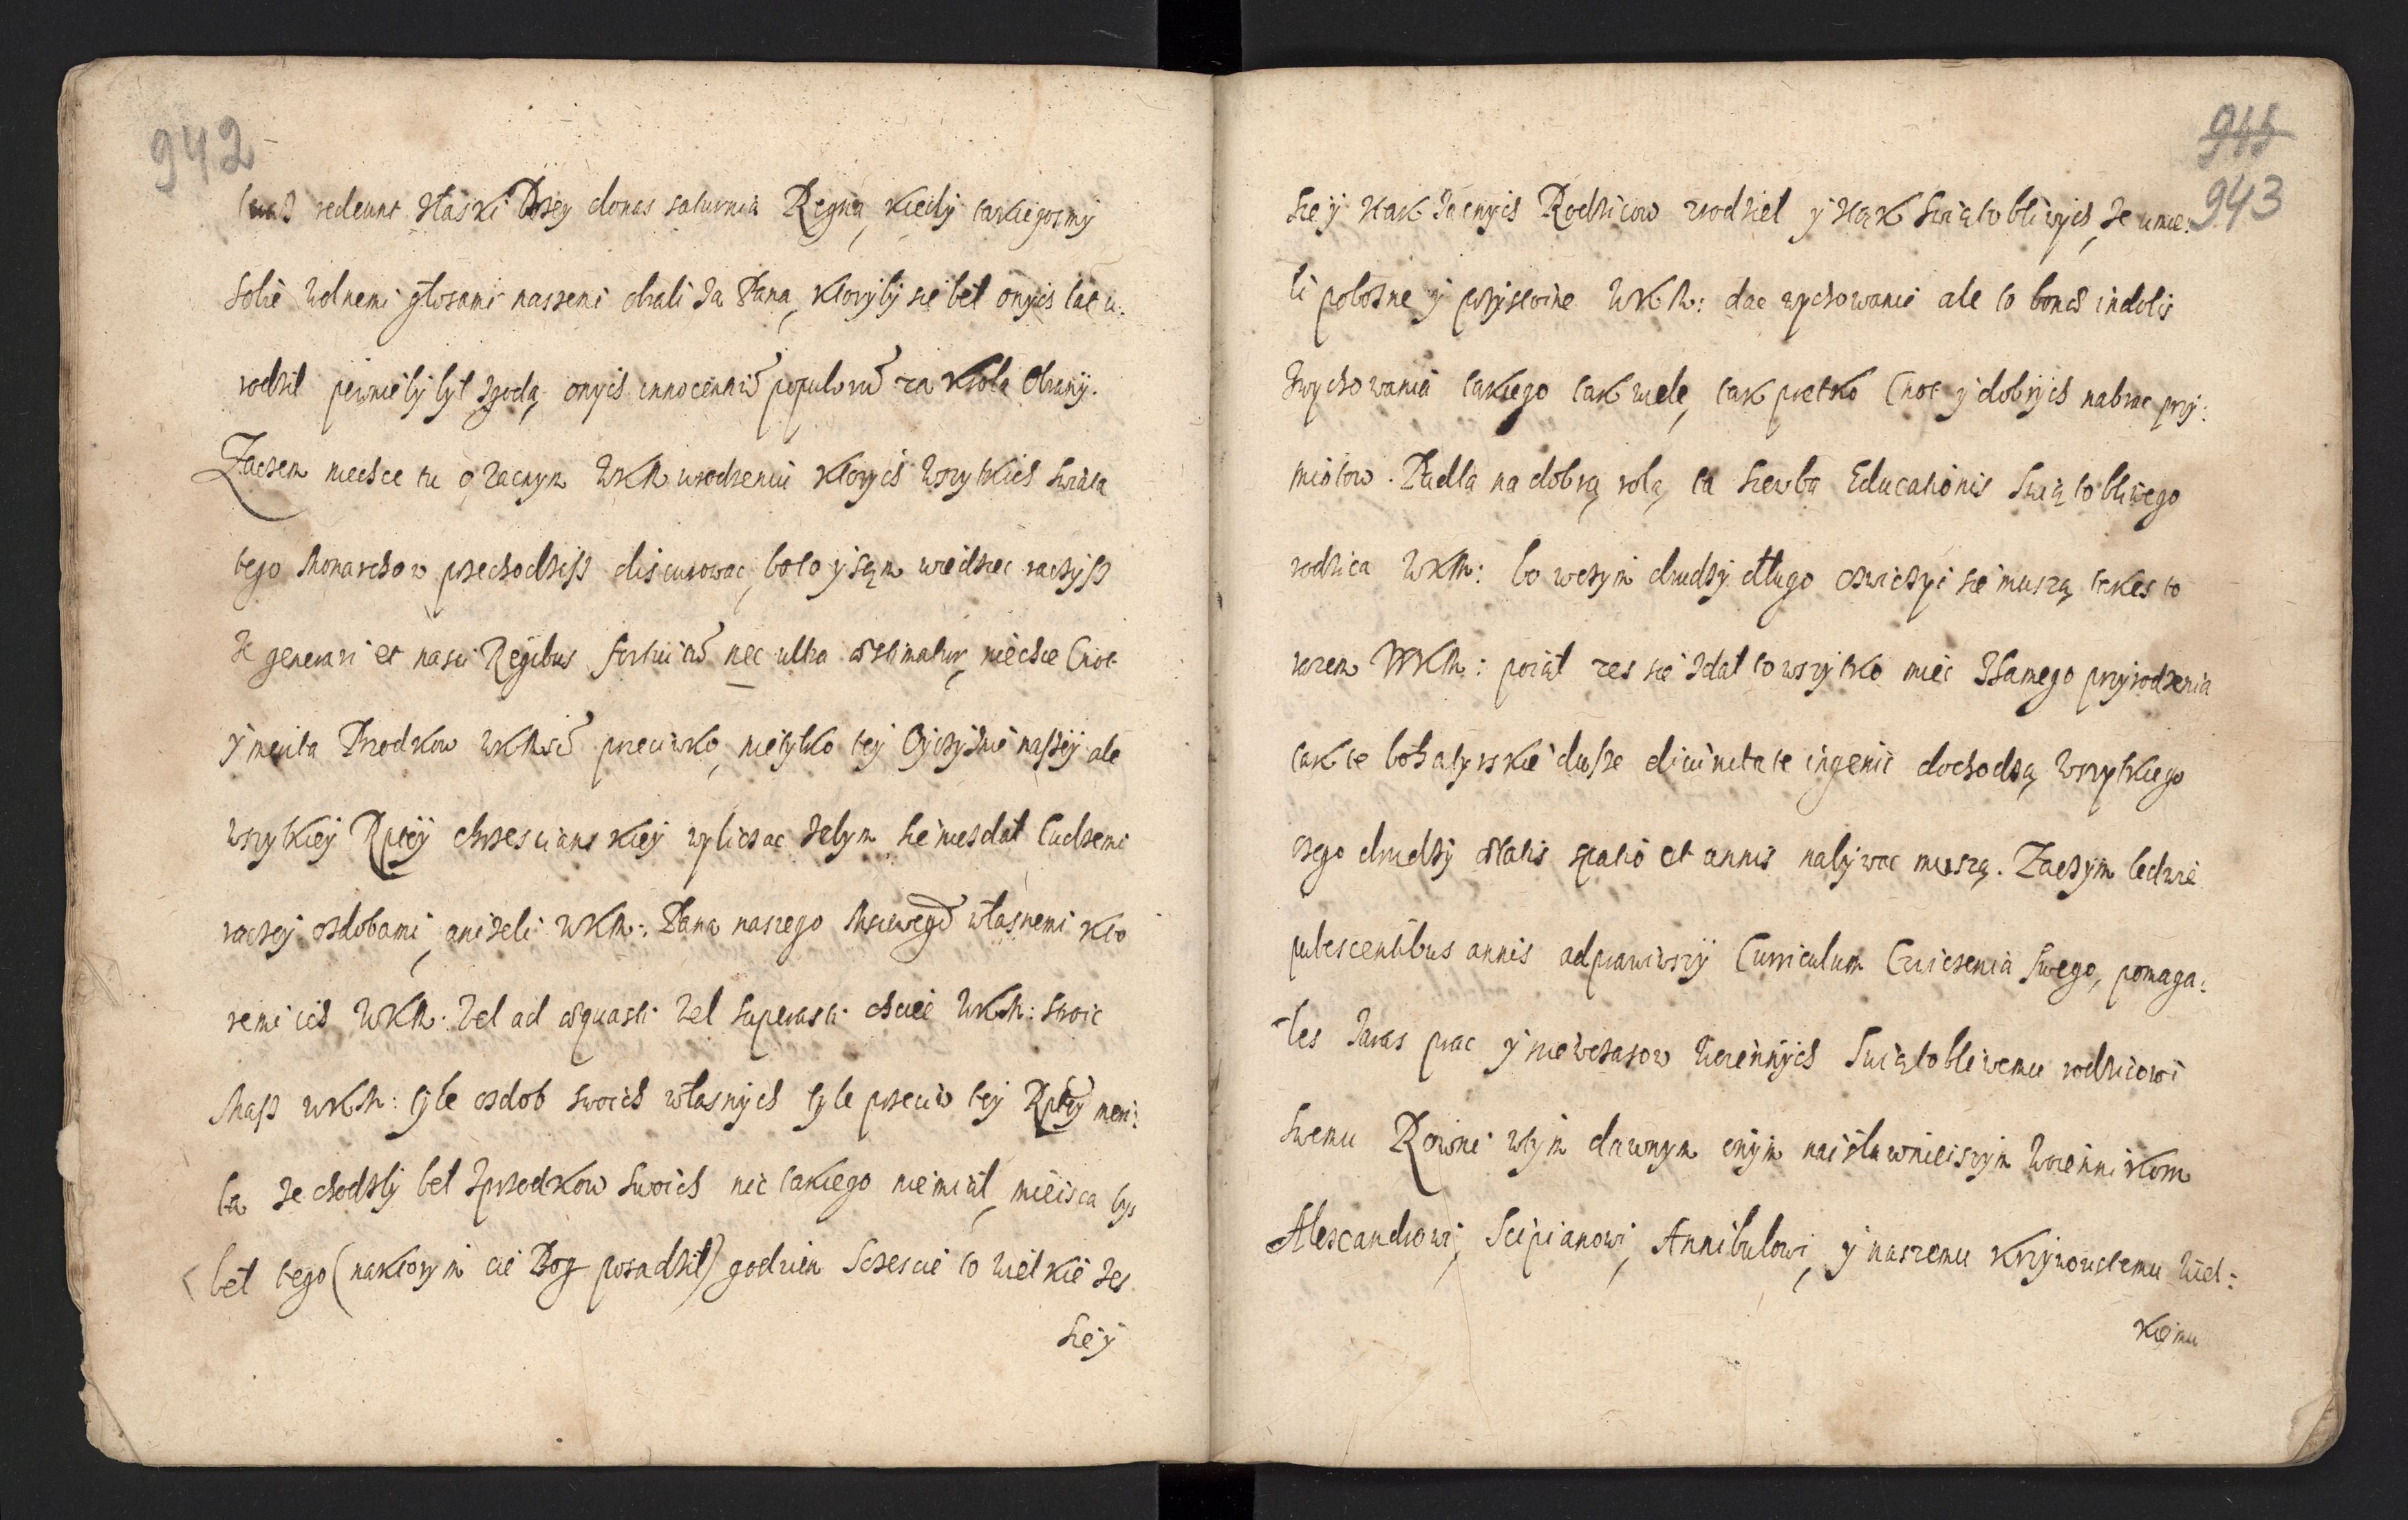 942
redeunt złaski Bożey donas saturnia Regna, kiedy takiegosmy
sobie wolnemi głosami naszemi obrali za Pana, ktoryby sie beł onych lat u:
rodził pewnieby był zgodą onych innocentiũ populorũ za Krola obrany.
Zaczem niechce tu o zacnym WKM urodzeniu ktorych wszytkich swiata
tego Monarchow przechodzisz discurowac, bo to y sąm wiedziec raczysz
że generari et nasci Regibus fortuitũ nec ultra æstimatur, niechce Cnot
y merita Przodkow WKMsci przeciwko, nietylko tey Oyczyznie naszey ale
wszytkiey Rptey chrzescianskiey wyliczac zebym sie niezdał Cudzemi
raczey ozdobami, anizeli WKM: Pana naszego Msciwego własnemi kto
remi ich WKM. vel ad æquasti vel superasti chciei WKM: swoie
Masz WKM: tyle ozdob swoich własnych tyle przeciw tey Rptey meri:
ta że chodzby beł zprzodkow swoich nic takiego niemiał, mieisca bys
beł tego (naktorym cie Bog posadził) godzien Sczescie to wielkie zes
sie y
945
943
sie y ztak zacnych Rodzicow urodzieł y ztąk swiątobliwych, ze umie:
li pobozne y przystoine WKM: dac wychowanie ale to bonæ indolis
zwychowania takiego tak wiele, tak prętko Cnot y dobrych nabrac przy:
miotow. Padła na dobrą rolą ta siewba Educationis swiątobliwego
rodzica WKM: bo wczym drudzy długo czwiczyc sie muszą, takes to
razem WKM: poiął zes sie zdał to wszytko miec zsamego przyrodzenia
tak te bohatyrskie dusze diuinitate ingenii dochodzą wszytkiego
czego drudzy ætatis spatio et annis nabywac muszą. Zaczym ledwie
pubescentibus annis adprawiwszy Curriculum Cwiczenia swego, pomaga:
łes zaras prac y niewczasow woiennych swiątobliwemu rodzicowi
swemu Rowni wtym dawnym onym naisławnieiszym woiennikom
Alexandrowi, Scipianowi, Annibalowi, y naszemu Krzywoustemu wiel:
kiemu